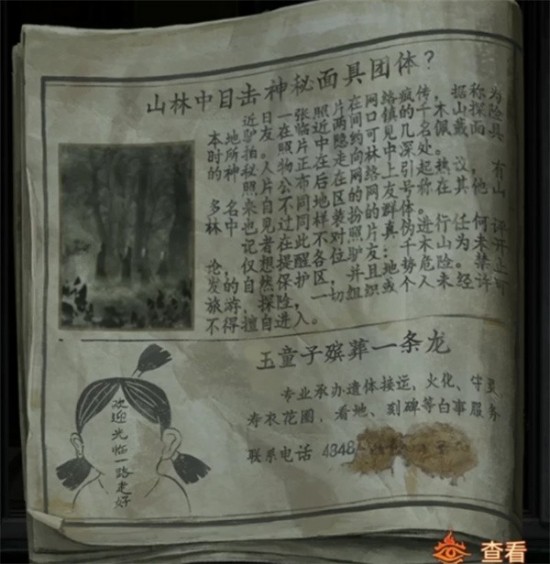 山林中目击神秘面具团体?
近日一张照片在网络疯传,据称为
本地驴友在临近两间口镇的千木山探险
时所拍。照片中隐约可见几名佩戴面具
的神秘人物正走向林中深处。
照片公布后在网络上引起热议,有
多名来自不同地区的网友号称在其他山
林中也见过同样装扮的群体。
记者在此不对照片真伪进行任何评
论,仅想提醒各位驴友:千木山为未开
发的自然保护区,并且地势危险。禁止
旅游,探险,一切组织或个人未经许可
不得擅自进入。
玉童子殡葬一条龙
专业承办遗体接运,火化、守灵,
寿衣花圈,看地、刻碑等白事服务
联系电话 4848
欢迎光临一路走好
查看